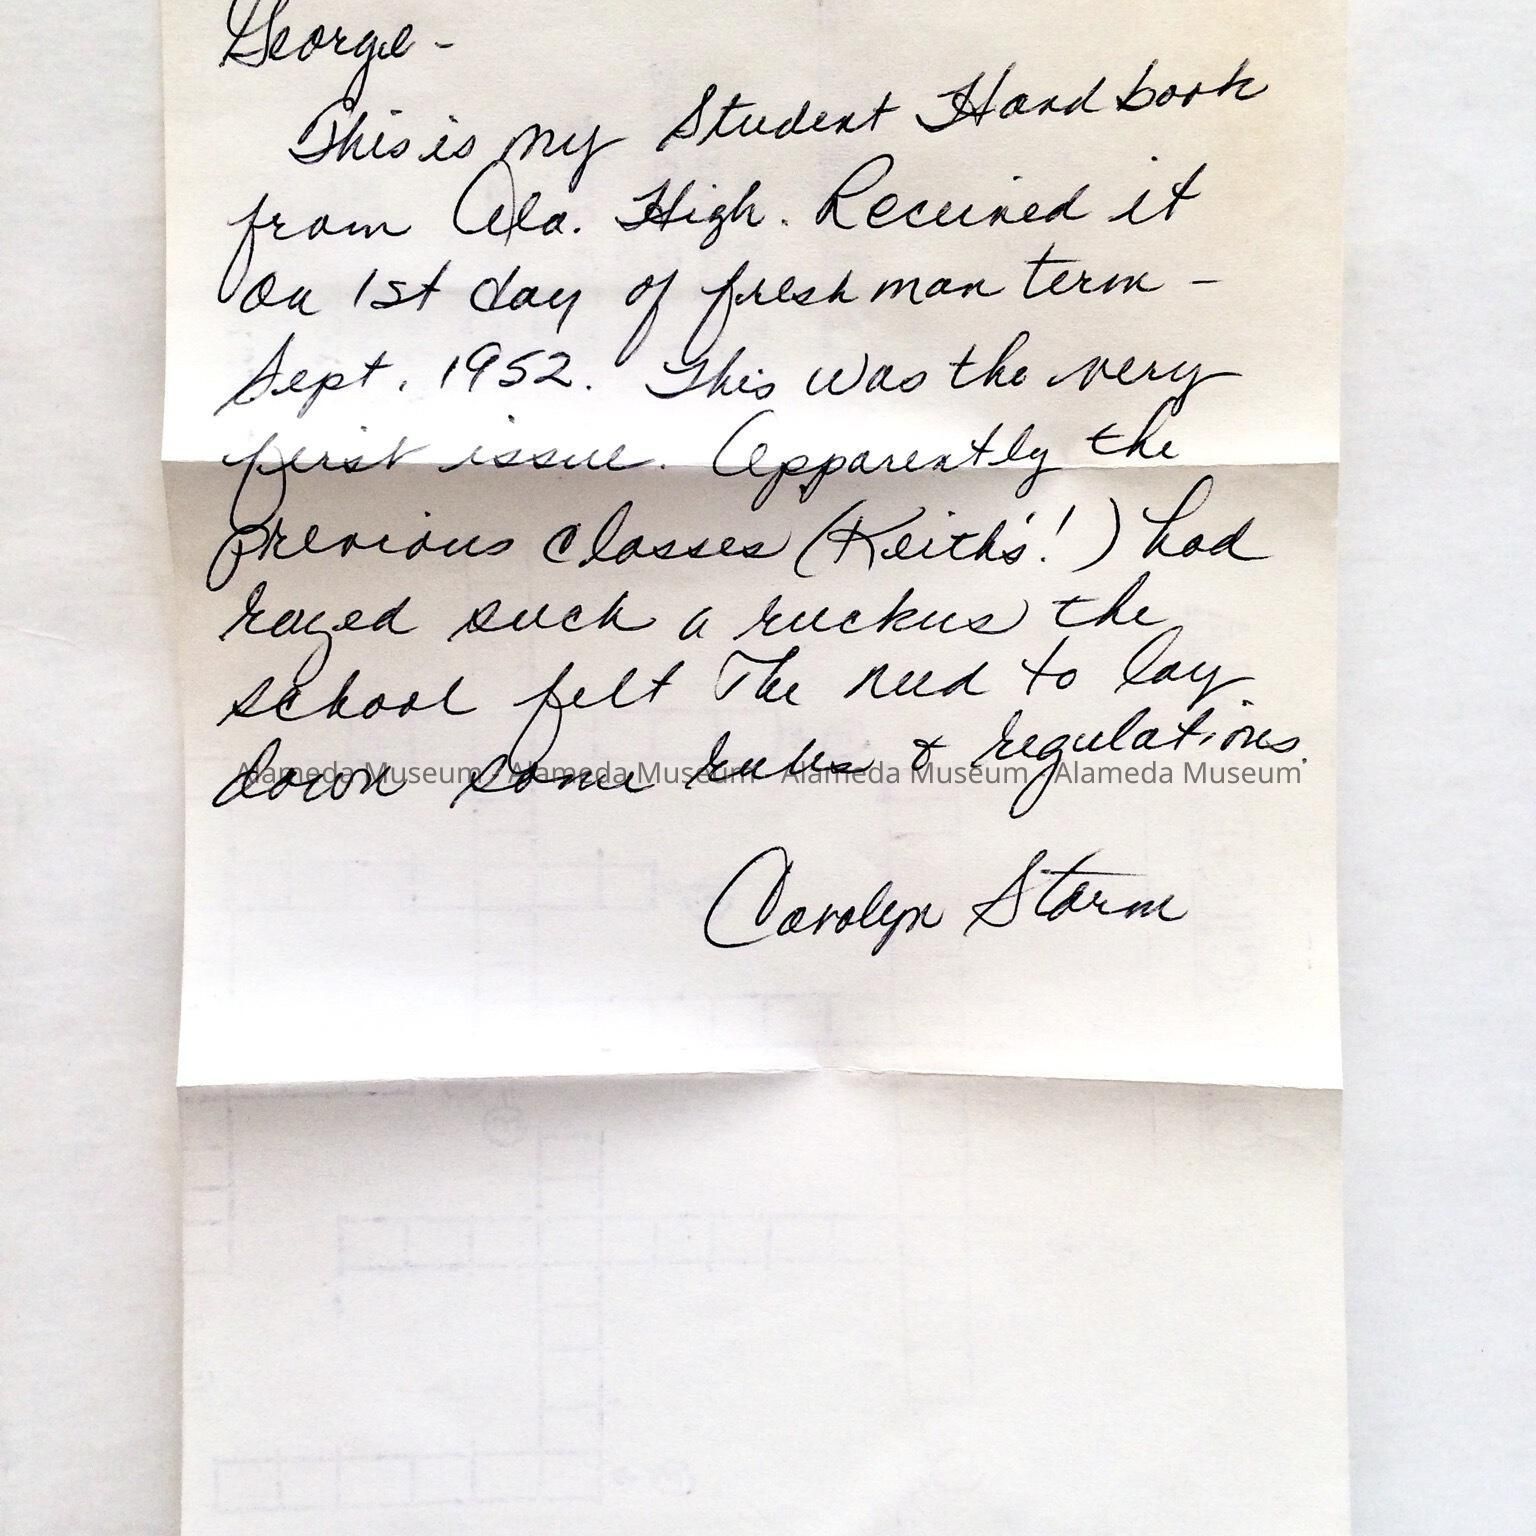 George -
This is my Student Handbook
from Ala. High. Received it
on 1st day of freshman term -
Sept. 1952. This was the very
first issue. Apparently the
previous classes (Keith's!) had
razed such a ruckus the
school felt the need to lay
down some rules & regulations.
Alameda Museum - Alameda Museum - Alameda Museum - Alameda Museum
Carolyn Storm